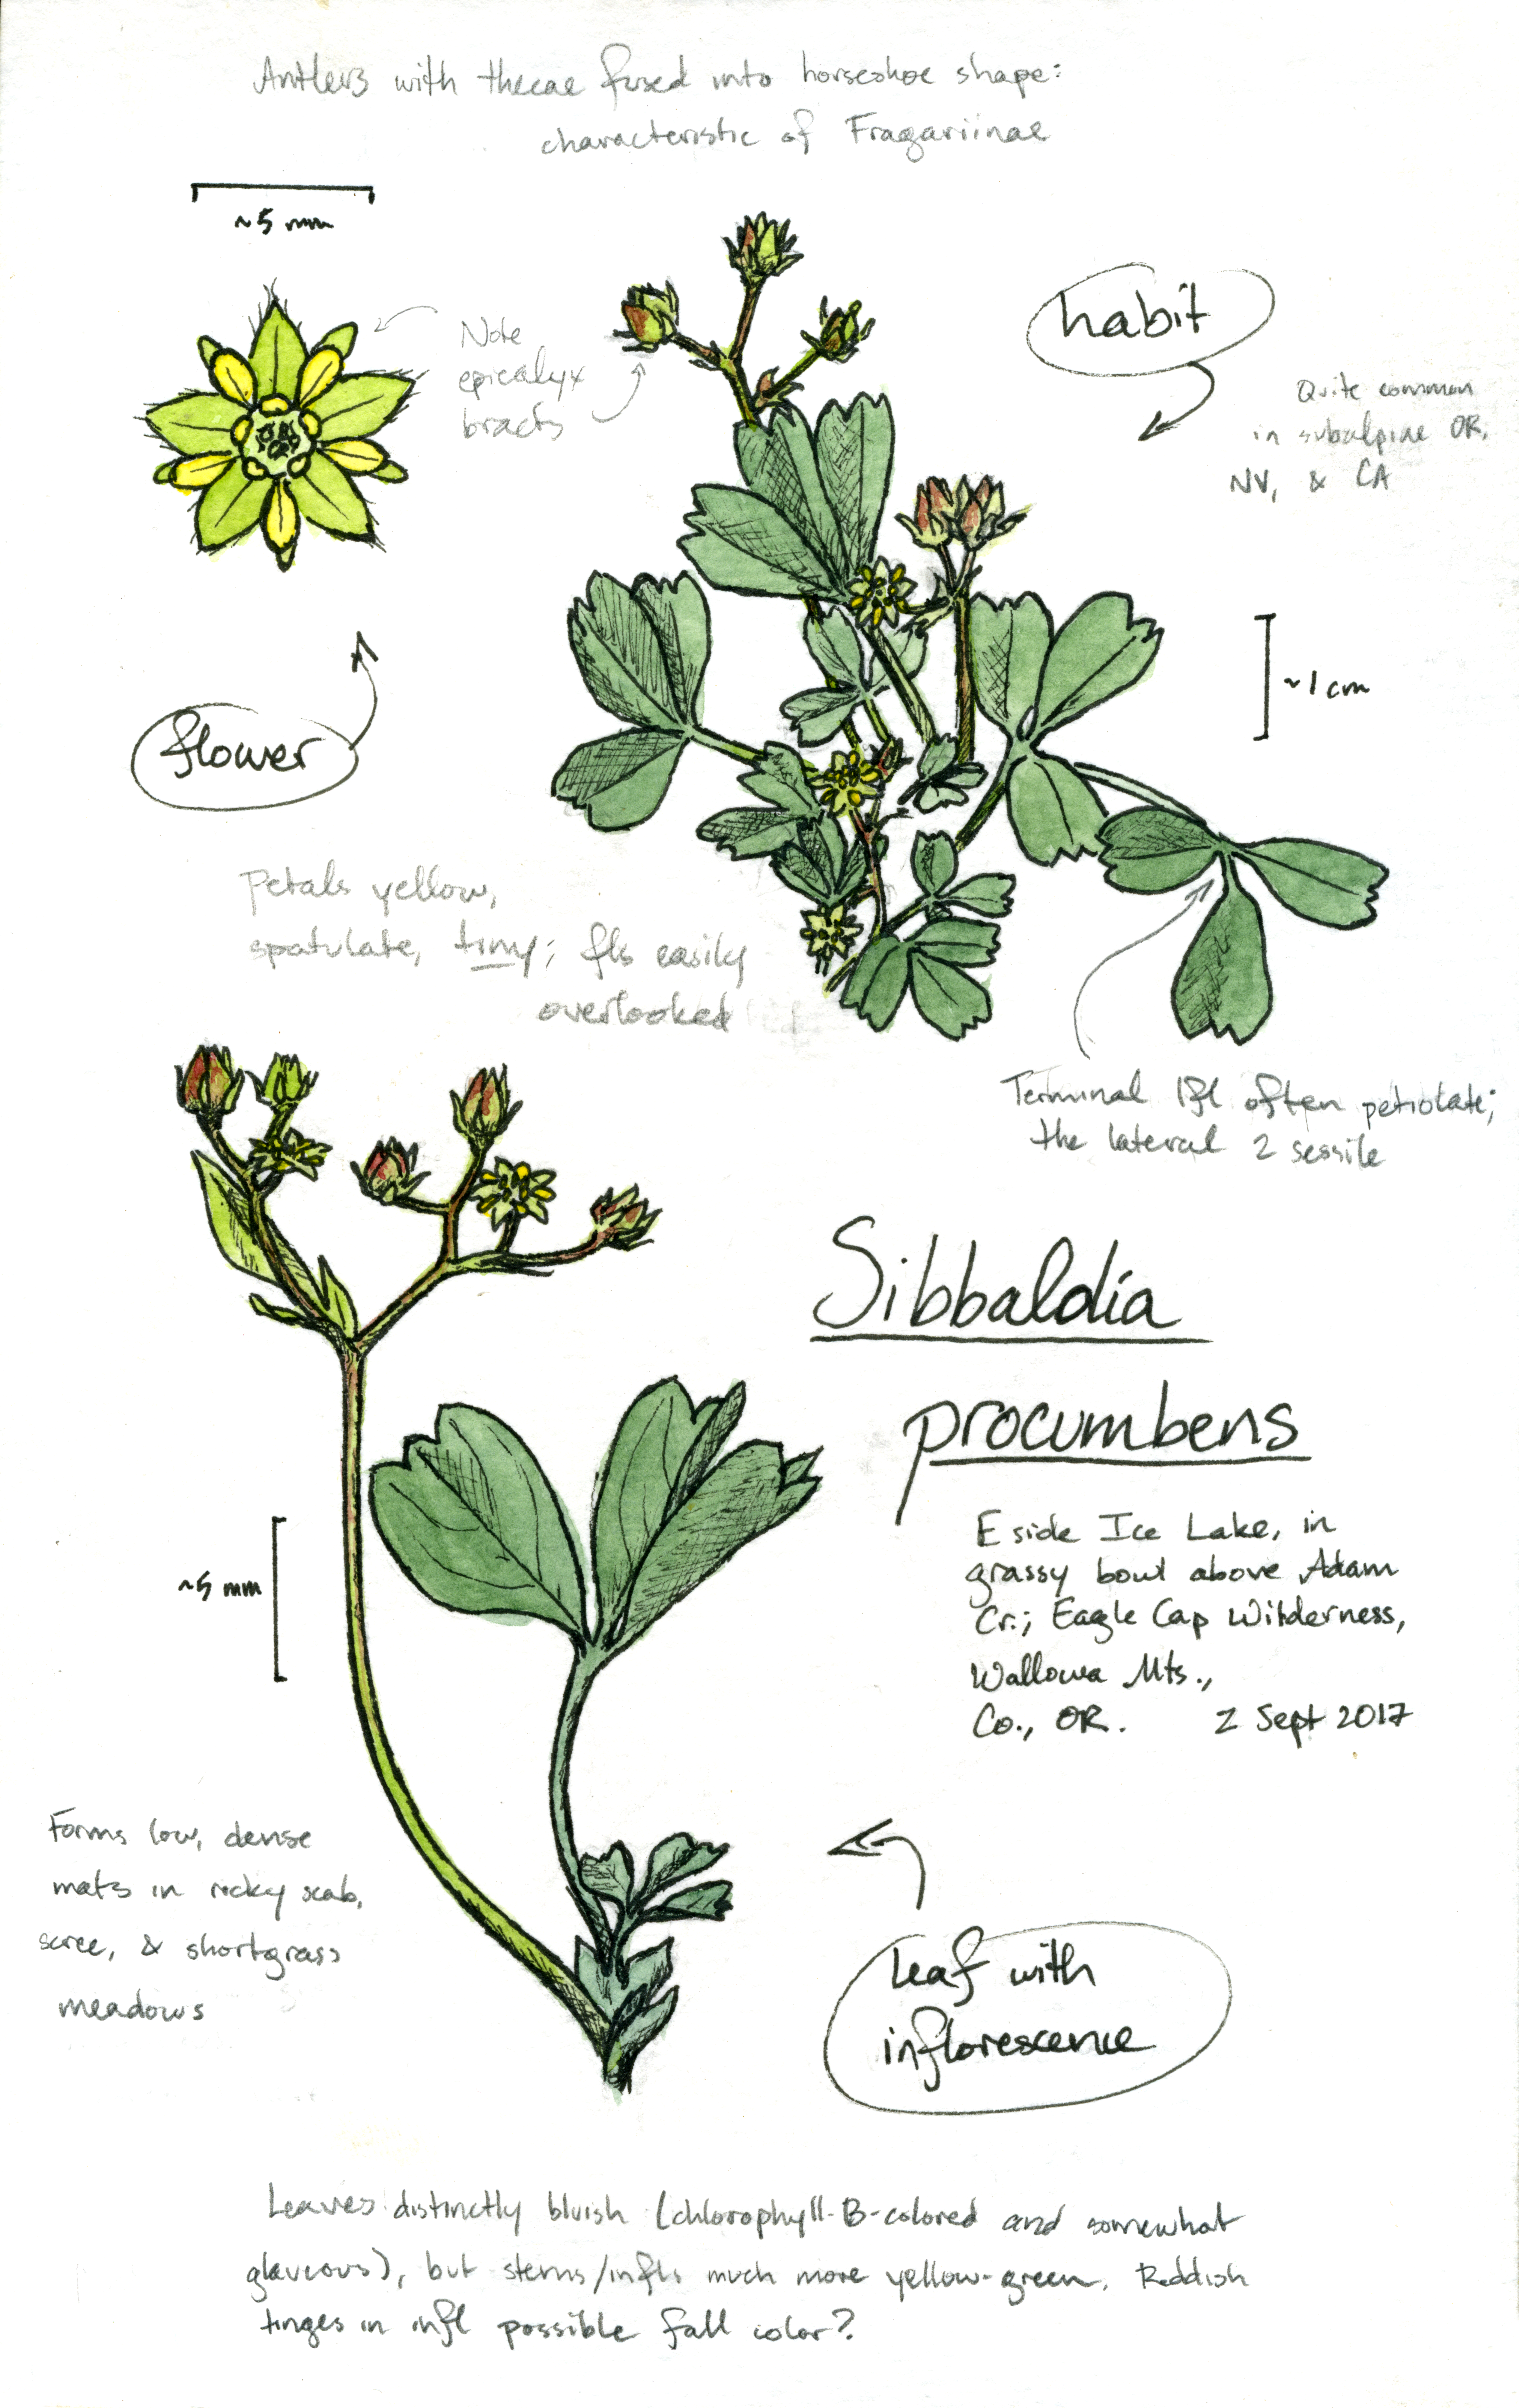 Antlers with thecae fused into horseshoe shape:
characteristic of Fragariinae
~5 mm
Note
epicalyx
bracts
habit
Quite common
in subalpine OR,
NV, & CA
~1 cm
flower
Petals yellow,
spatulate, tiny; fls easily
overlooked
Terminal lfl often petiolate;
the lateral 2 sessile
Sibbaldia
procumbens
E side Ice Lake, in
grassy bowl above Adam
Cr.; Eagle Cap Wilderness,
Wallowa Mts.,
Co., OR. 2 Sept 2017
~5 mm
Forms low, dense
mats in rocky scab,
scree, & shortgrass
meadows
leaf with
inflorescence
Leaves distinctly bluish (chlorophyll-B-colored and somewhat
glaucous), but stems/infls much more yellow-green. Reddish
tinges in infl possible fall color?